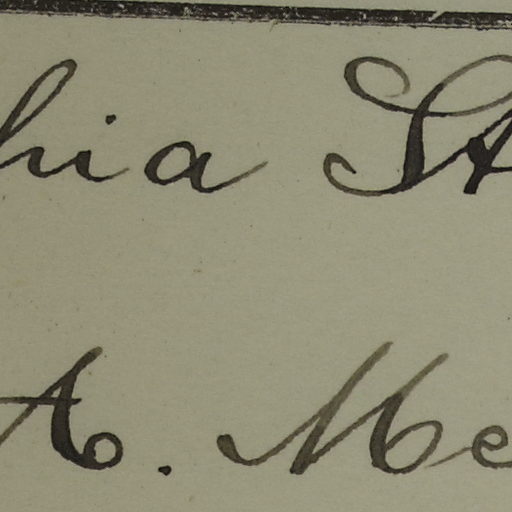 hia St
A. Me